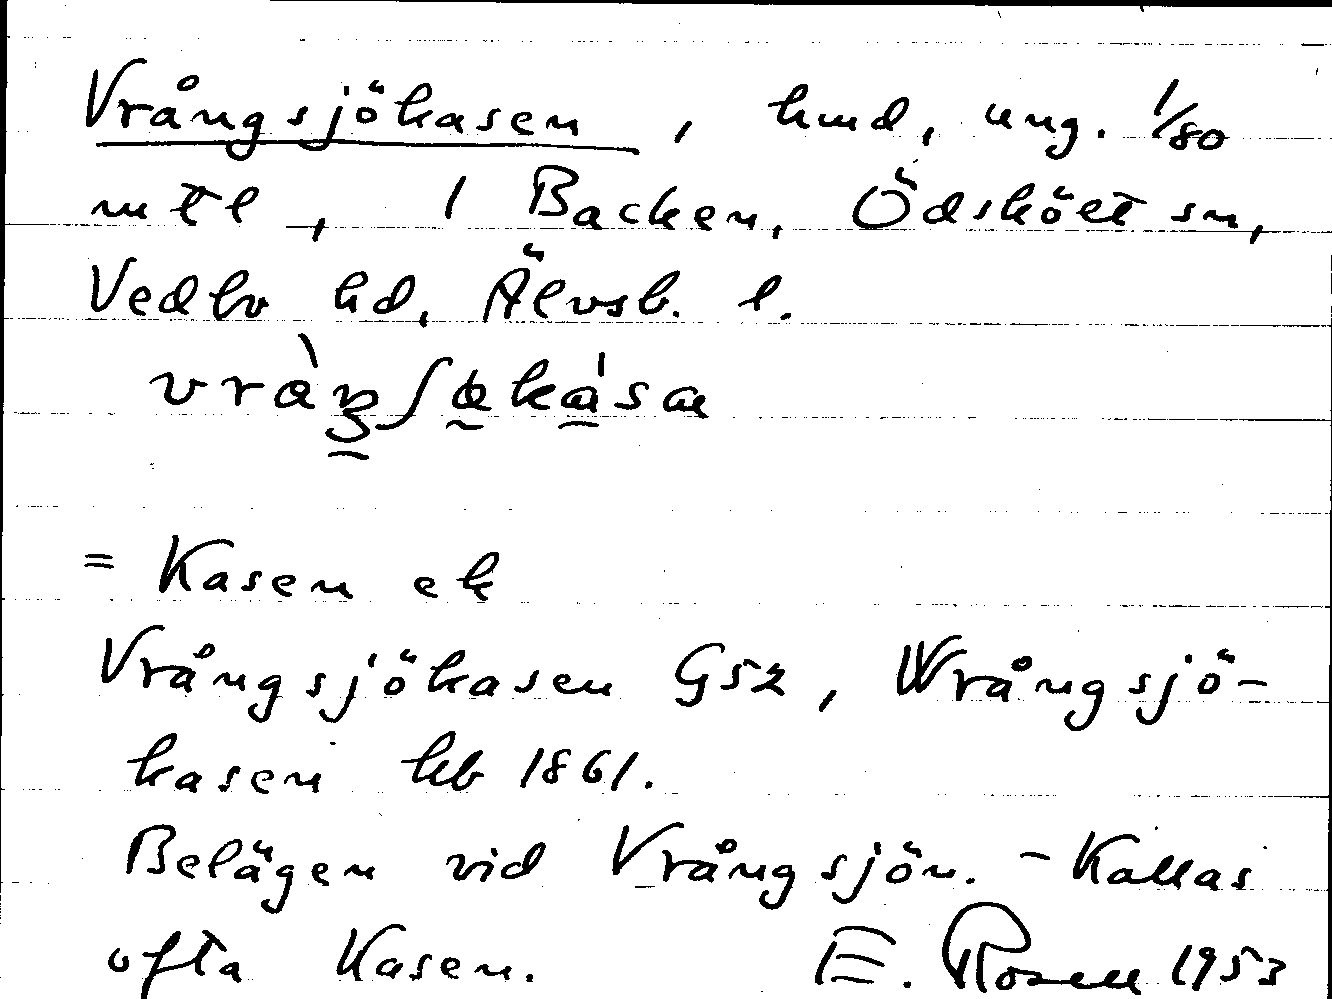 Vrångsjökasen, hmd, ung. 1/80
mtl, 1 Backen, Ödskölt sn,
Vedbo hd, Älvsb. l.
= Kasen ek
Vrångsjökasen G52, Wrångsjö-
kasen kb 1861.
Belägen vid Vrångsjön. - Kallas
ofta Kasen. E. Rosell 1953